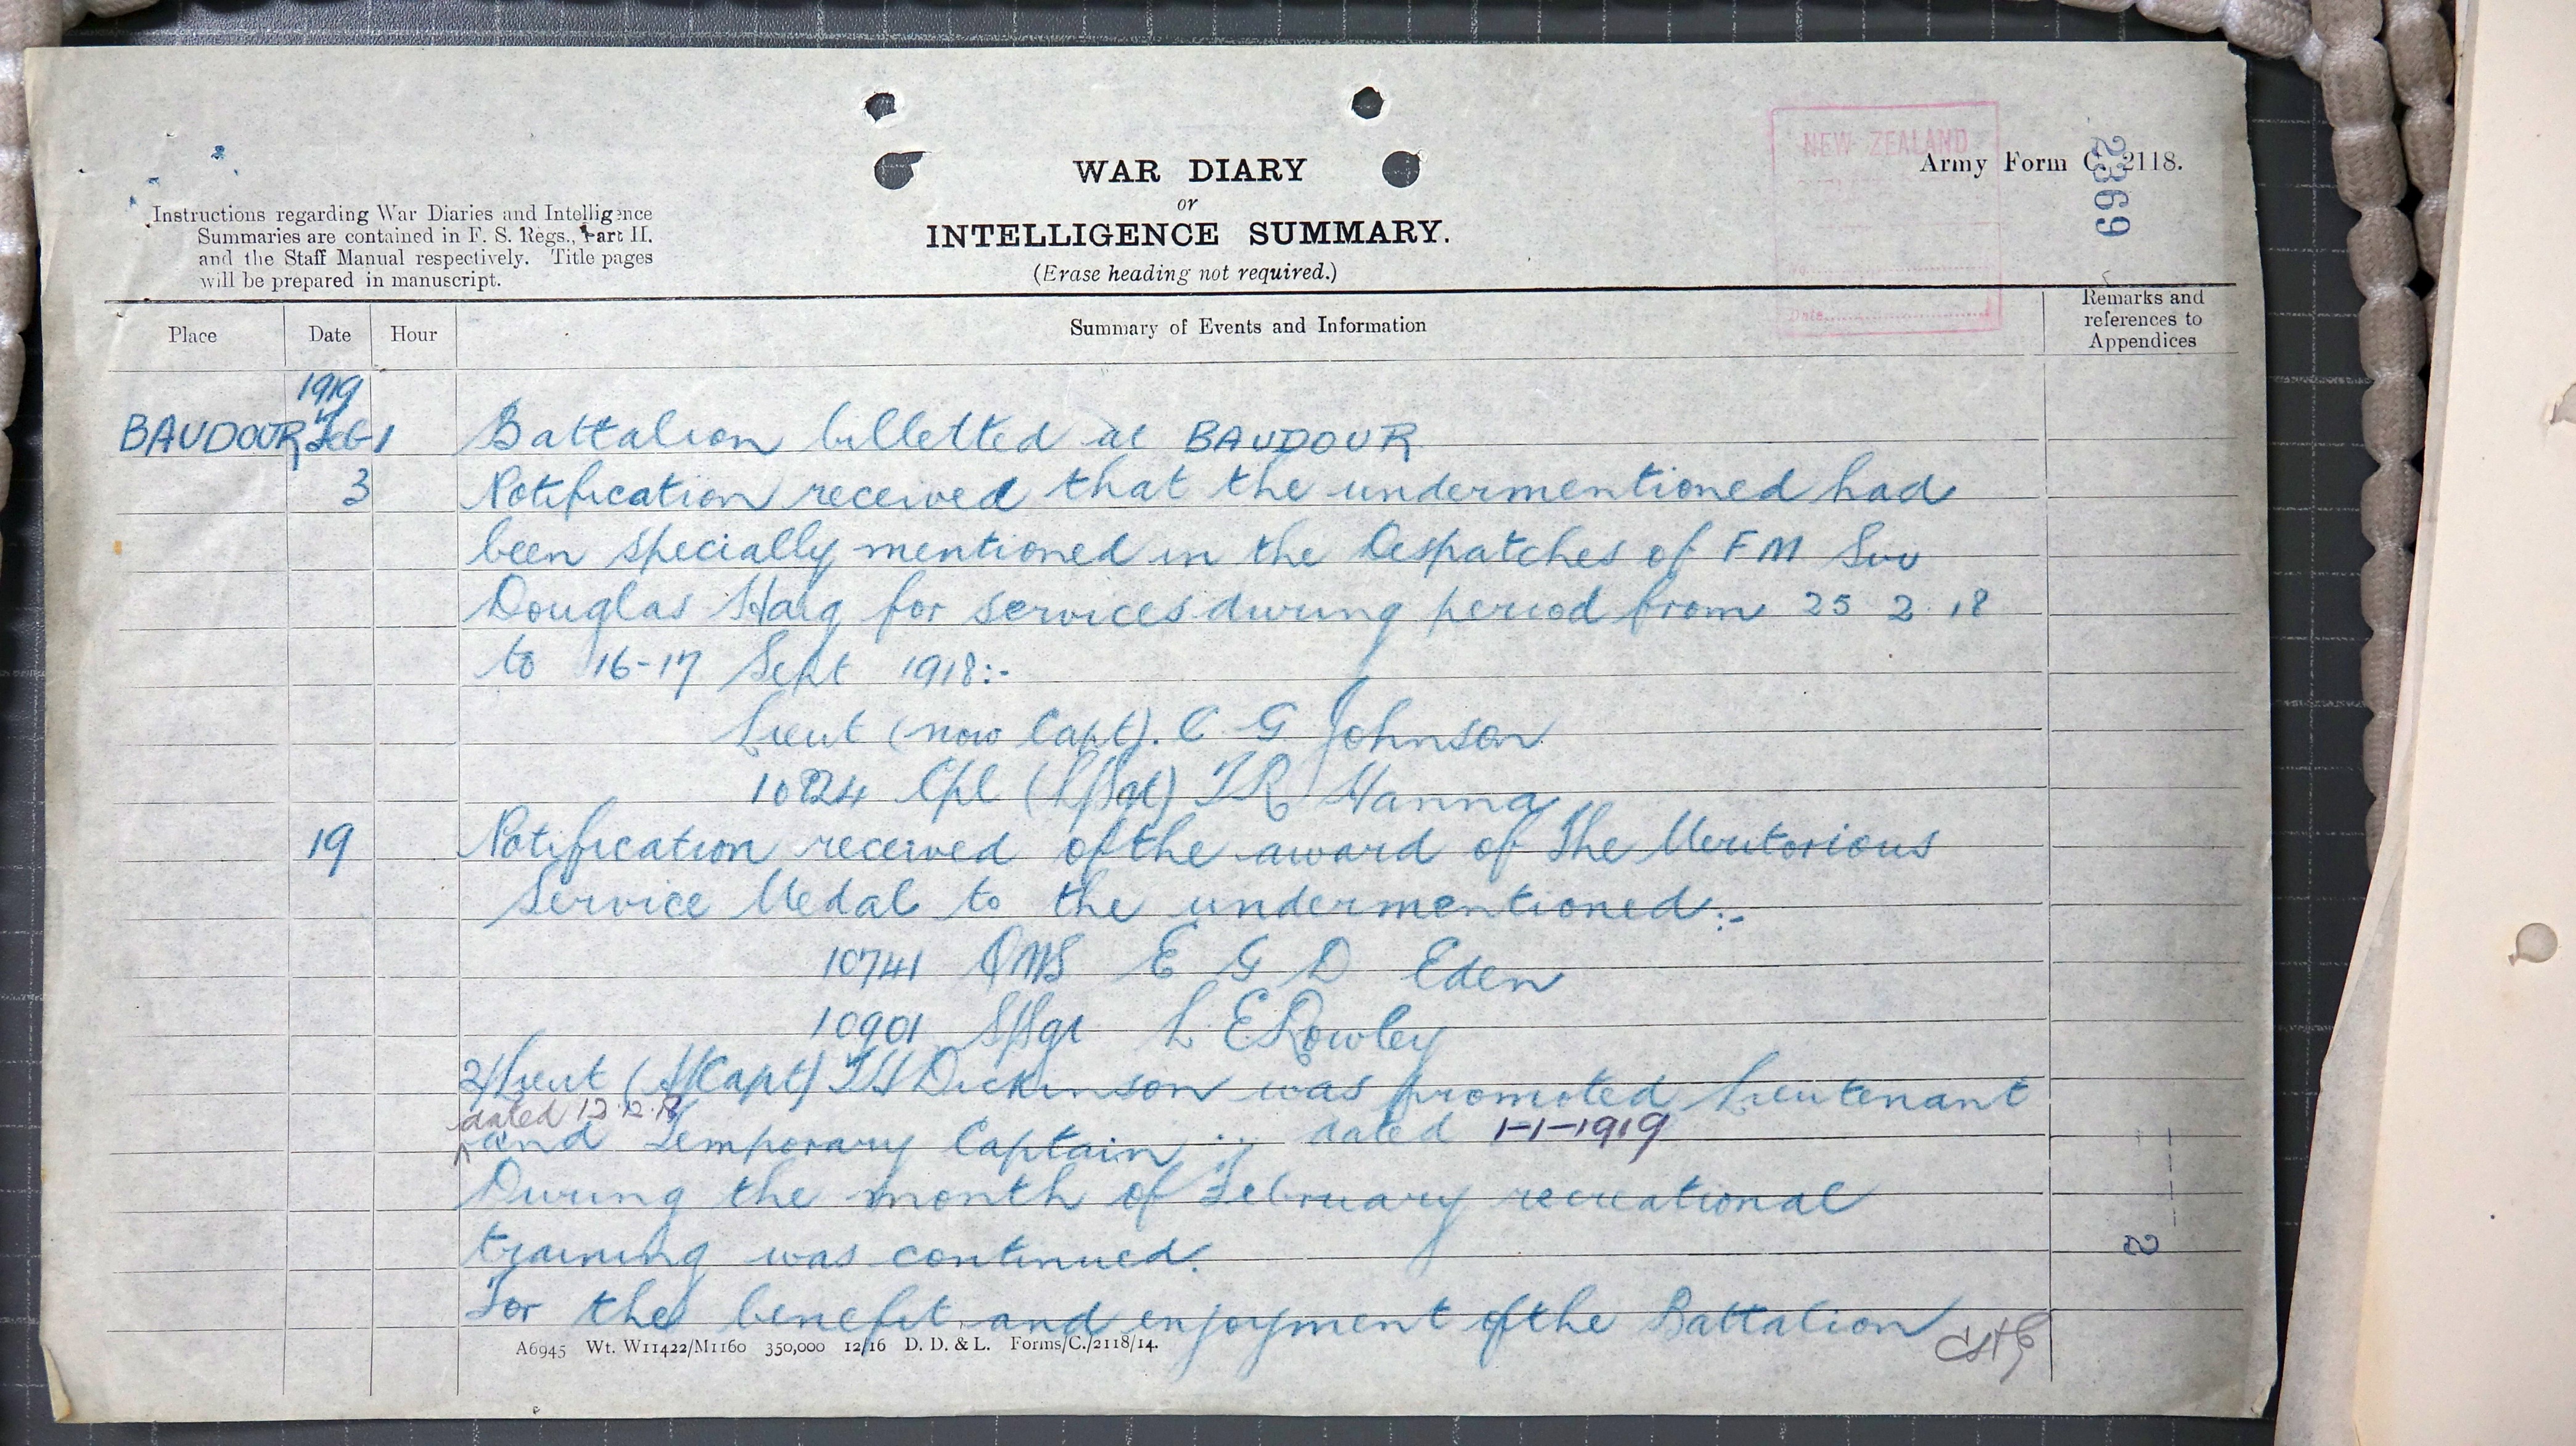 NEW ZEALAND
Date
2369
WAR DIARY
or
INTELLIGENCE SUMMARY.
(Erase heading not required.)
Army Form C. 2118.
Instructions regarding War Diaries and Intelligence
Summaries are contained in F. S. Regs., Part II.
and the Staff Manual respectively. Title pages
will be prepared in manuscript.
Place Date Hour Summary of Events and Information Remarks and references to Appendices
1919
BAUDOUR Feb 1 Battalion billetted at BAUDOUR
3 Notification received that the undermentioned had
been specially mentioned in the Despatches of FM Sir
Douglas Haig for services during period from 25 2 18
to 16-17 Sept 1918:-
Lieut (now Capt). C G Johnson
10824 Cpl (L/Sgt) TR Hanna
19 Notification received of the award of The Meritorious
Service Medal to the undermentioned:-
10741 QMS E G D Eden
10901 S/Sgt L E Rowley
2/Lieut (A/Capt) TH Dickinson was promoted Lieutenant
dated 12.12.18
and Temporary Captain dated 1-1-1919
During the month of February recreational
training was continued.
For the benefit and enjoyment of the Battalion
A6945 Wt. W11422/M1160 350,000 12/16 D. D. & L. Forms/C./2118/14.
2